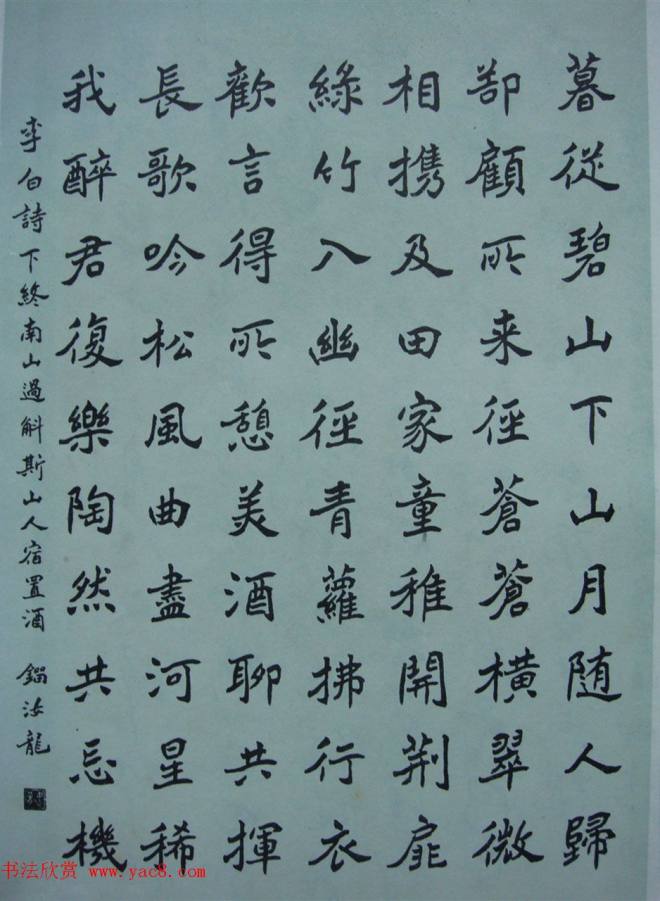 暮從碧山下山月随人歸
郤顧所来徑蒼蒼橫翠微
相携及田家童稚開荆扉
綠竹入幽徑青蘿拂行衣
歡言得所憩美酒聊共揮
長歌吟松風曲盡河星稀
我醉君復樂陶然共忘機
李白詩下終南山過斛斯山人宿置酒 汝龍
书法欣赏 www.yac8.com